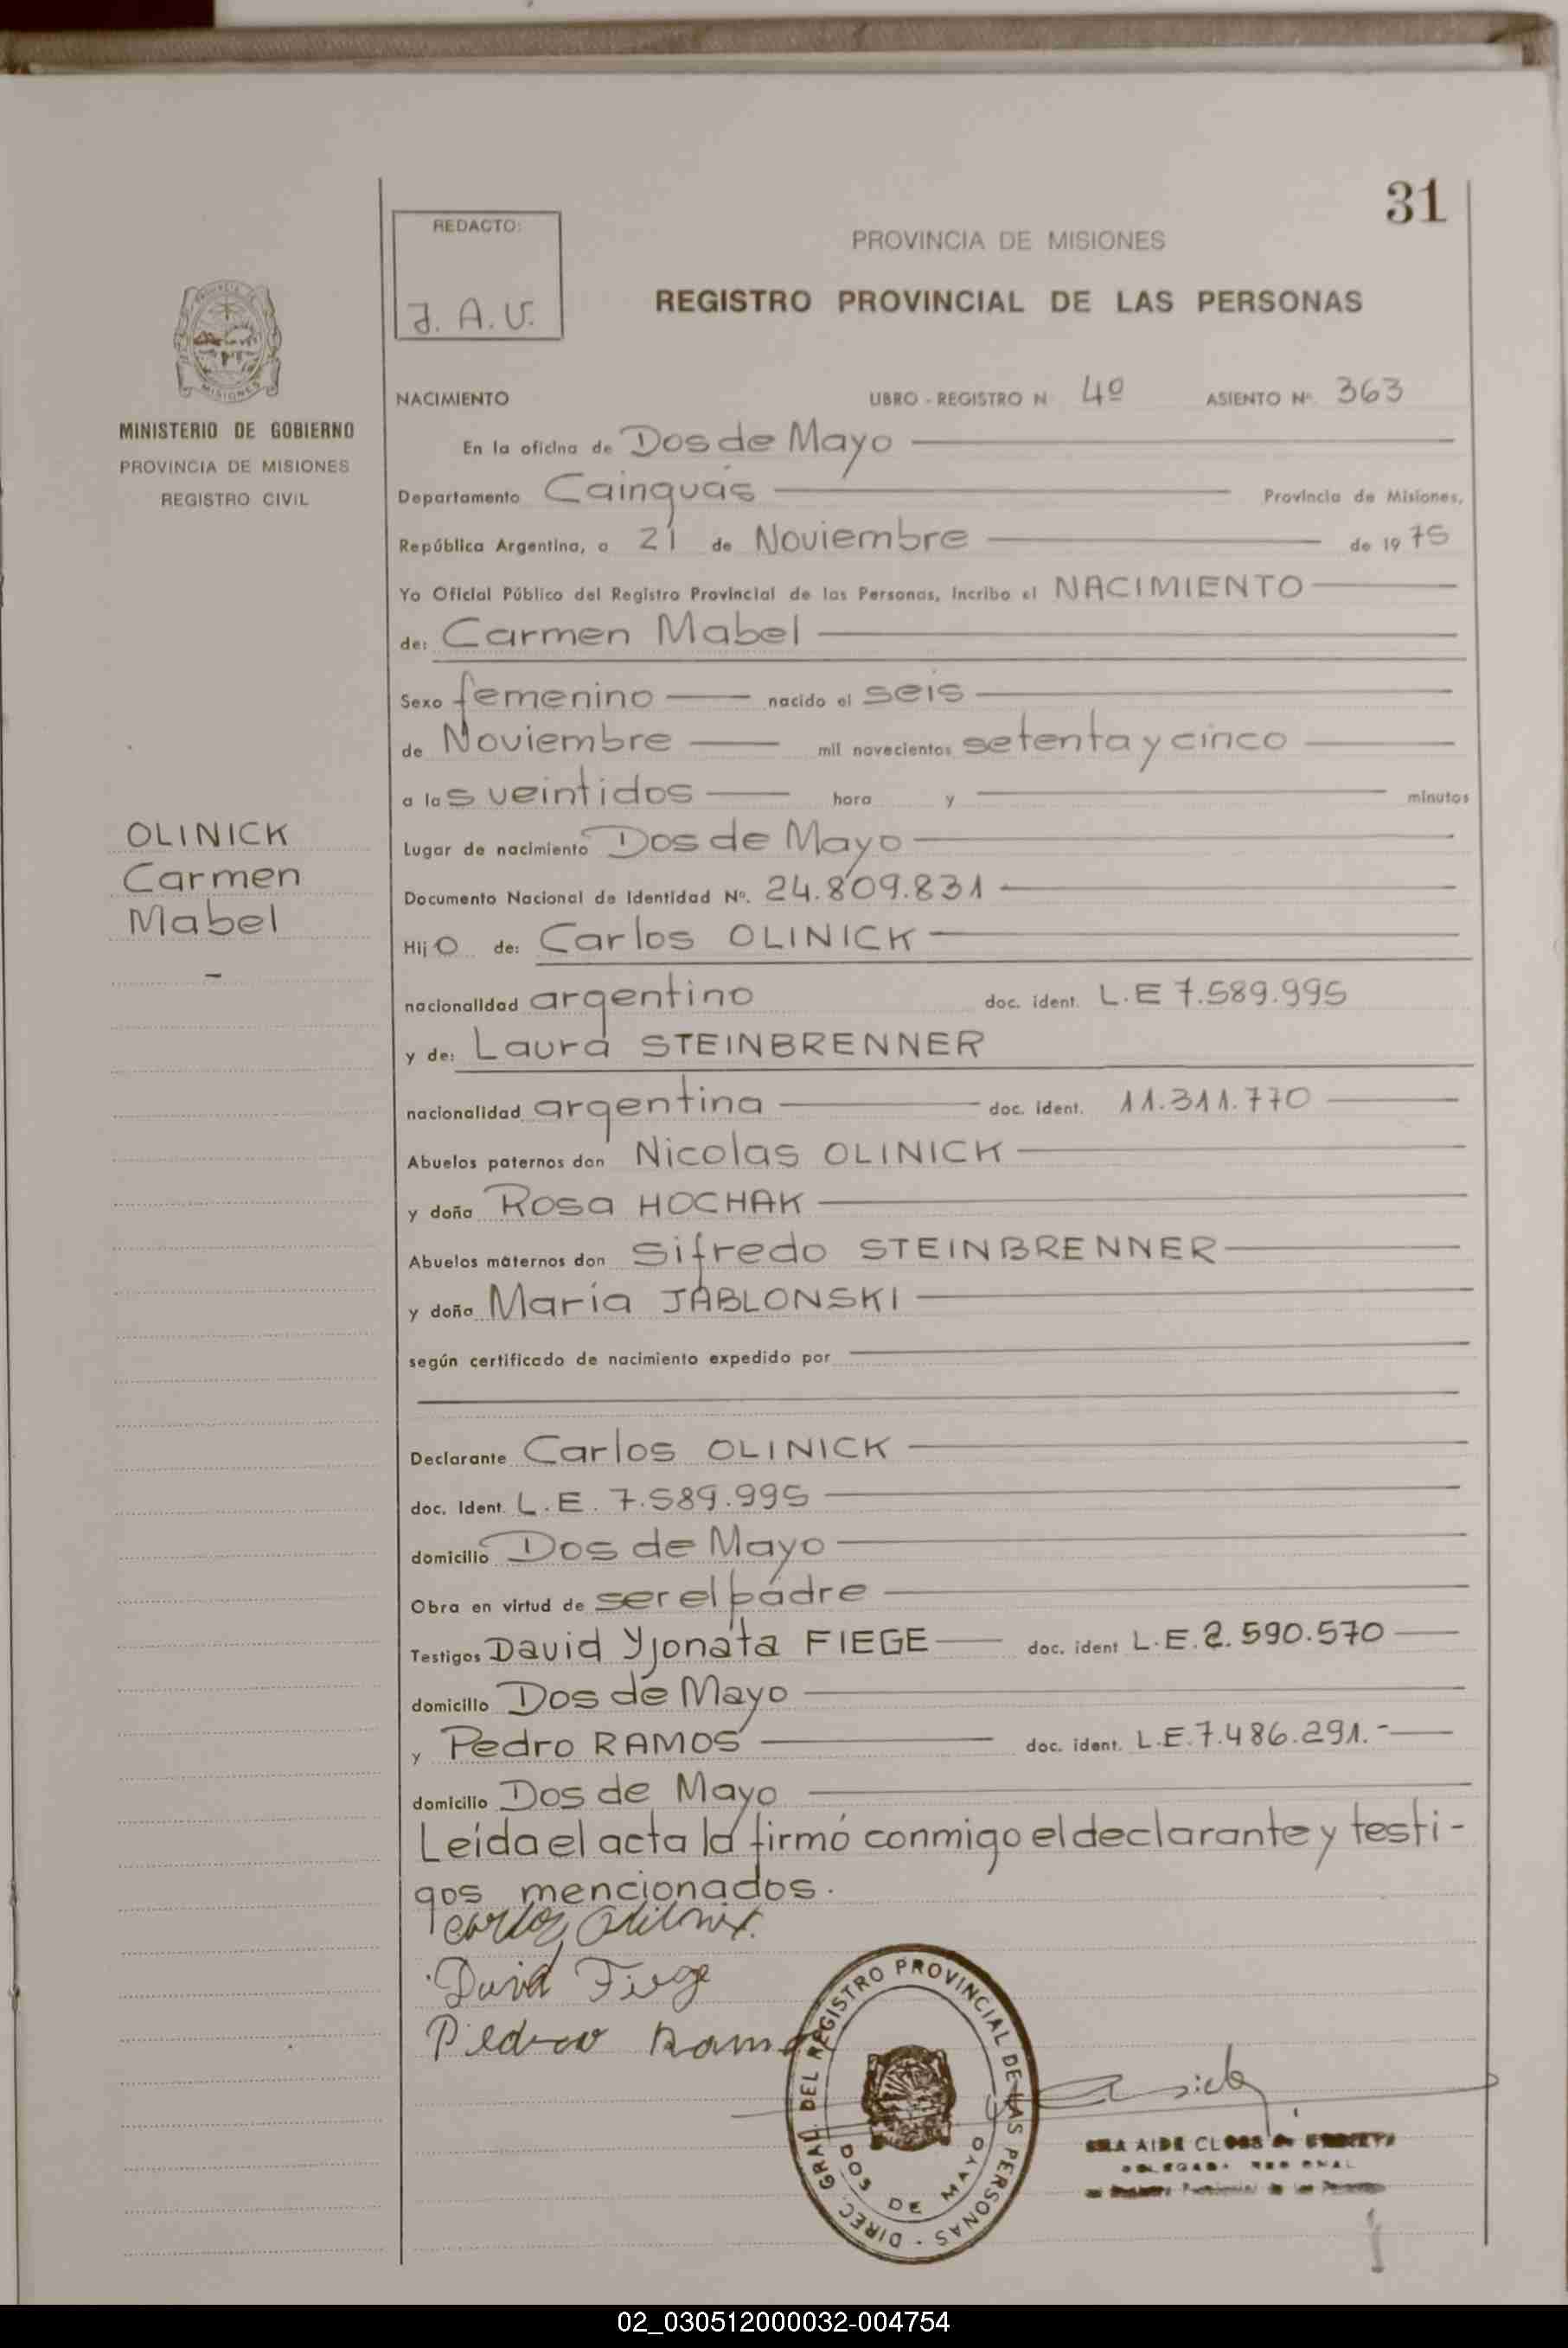 31
REDACTO:
J. A. V.
PROVINCIA DE MISIONES
REGISTRO PROVINCIAL DE LAS PERSONAS
MINISTERIO DE GOBIERNO
PROVINCIA DE MISIONES
REGISTRO CIVIL
NACIMIENTO LIBRO - REGISTRO N 4º ASIENTO Nº 363
En la oficina de Dos de Mayo
Departamento Cainguás Provincia de Misiones,
República Argentina, a 21 de Noviembre de 1975
Yo Oficial Público del Registro Provincial de las Personas, incribo el NACIMIENTO
de: Carmen Mabel
Sexo femenino nacido el seis
de Noviembre mil novecientos setenta y cinco
a las veintidos hora y minutos
OLINICK
Carmen
Mabel
Lugar de nacimiento Dos de Mayo
Documento Nacional de Identidad Nº. 24.809.831
Hijo de: Carlos OLINICK
nacionalidad argentino doc. ident. L.E 7.589.995
y de: Laura STEINBRENNER
nacionalidad argentina doc. ident. 11.311.770
Abuelos paternos don Nicolas OLINICK
y doña Rosa HOCHAK
Abuelos maternos don Sifredo STEINBRENNER
y doña María JABLONSKI
según certificado de nacimiento expedido por
Declarante Carlos OLINICK
doc. Ident. L.E. 7.589.995
domicilio Dos de Mayo
Obra en virtud de ser el padre
Testigos David Yjonata FIEGE doc. ident L.E. 2.590.570
domicilio Dos de Mayo
y Pedro RAMOS doc. ident. L.E. 7.486.291.-
domicilio Dos de Mayo
Leída el acta la firmó conmigo el declarante y testi-
gos mencionados.
Carlos
David Fiege
Piedro Ramo
DIREC. GRAL. DEL REGISTRO PROVINCIAL DE LAS PERSONAS
DOS DE MAYO
AIDE
02_030512000032-004754